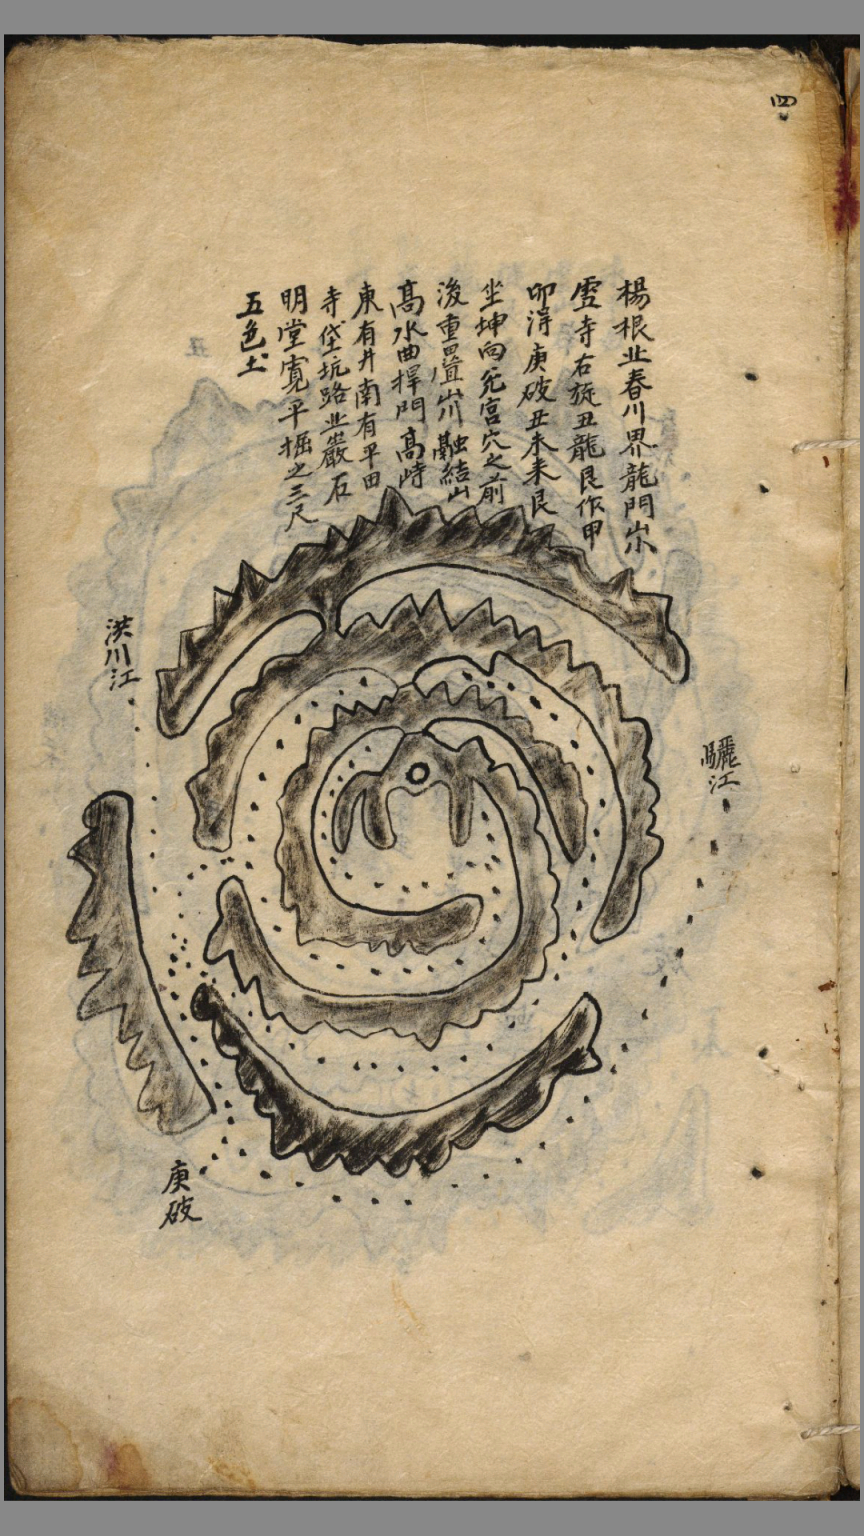 四
楊根北春川界龍門山
寺右旋丑龍艮作甲
卯得庚破丑未来艮
坐坤向 宮穴之前
後重疊 融結山
高水曲捍門高峙
東有井南有平田
寺垈坑路北巖石
明堂寬平掘之三尺
五色土
洪川江
驪江
庚破